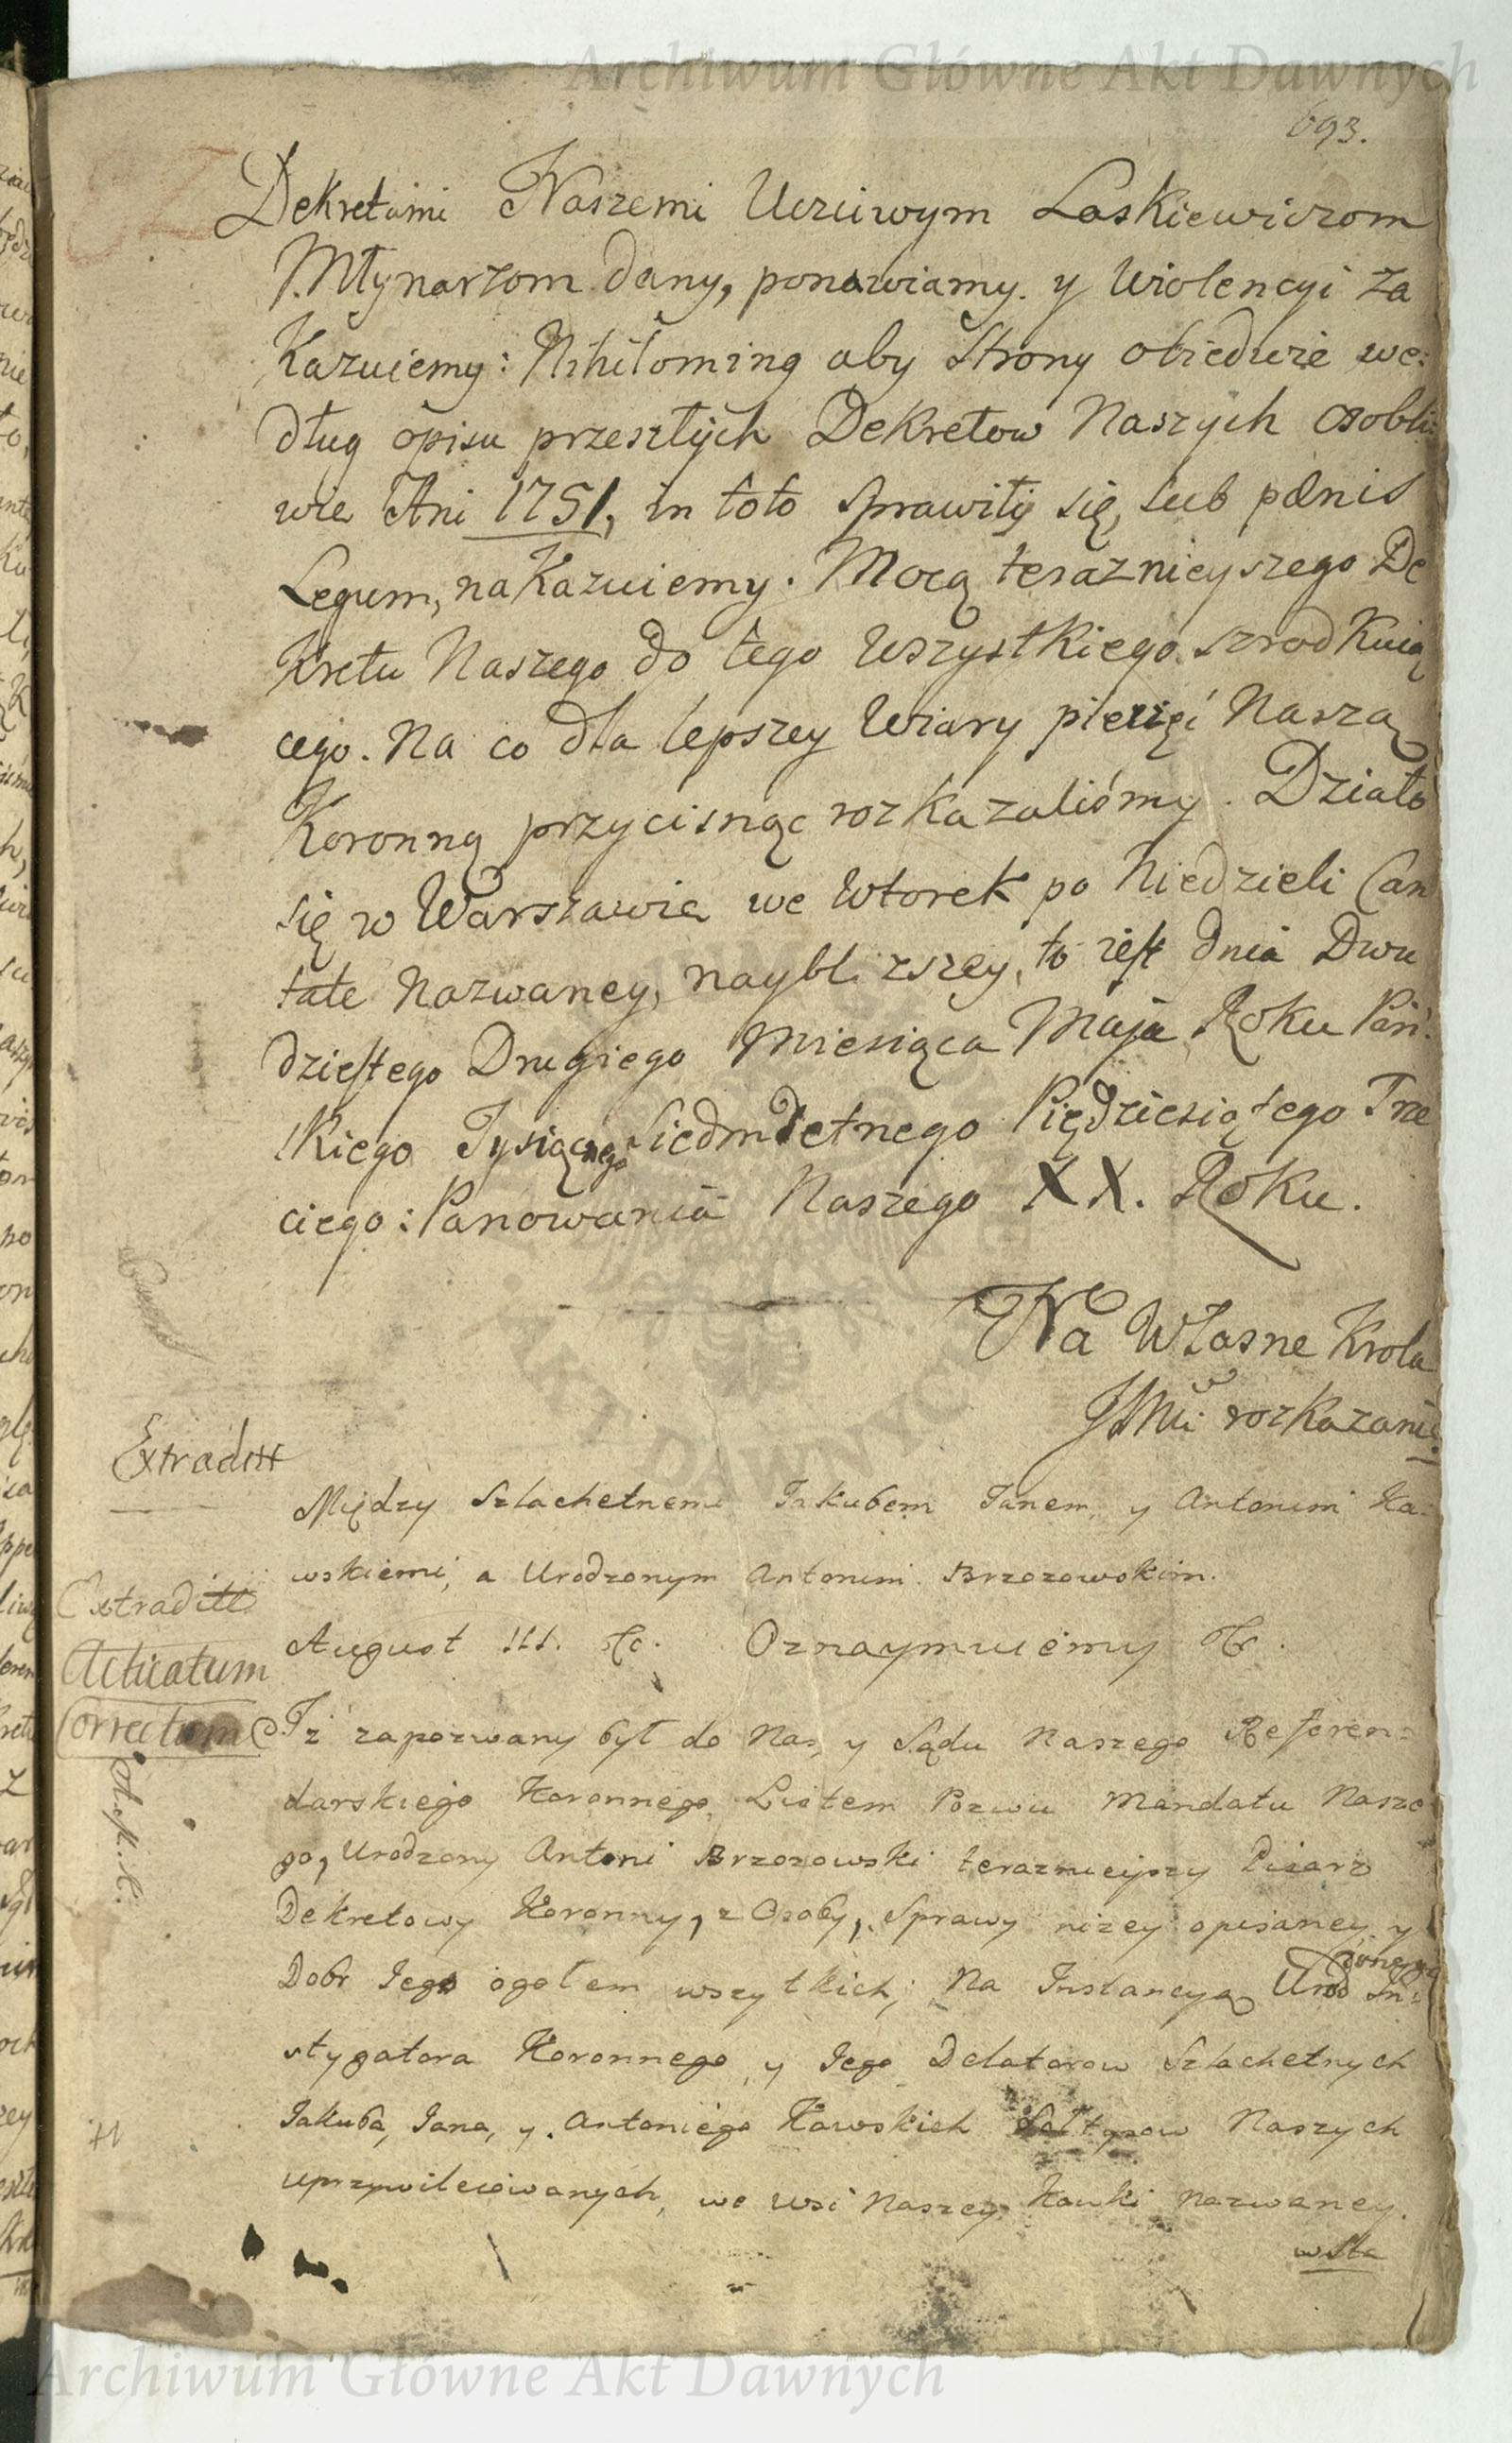 Archiwum Główne Akt Dawnych
693.
Dekretami Naszemi Uczciwym Laskiewiczom
Młynarzom dany, ponawiamy. y Wiolencyi za
kazuiemy: Nihilominq aby Strony obiedwie we:
dług opisu przeszłych Dekretow Naszych osobli:
wie Ani 1751, in toto sprawiły się, sub pænis
Legum, nakazuiemy. Mocą teraznieyszego De
kretu Naszego do tego wszystkiego szrodkuią
cego. Na co dla lepszey Wiary pieczęć Naszą
Koronną przycisnąc rozkazaliśmy. Działo
się w Warszawie we Wtorek po Niedzieli Can
tate Nazwaney, naybliszszey, to iest dnia Dwu
dziestego Drugiego Miesiąca Maja Roku Pań:
skiego Tysiącnego Siedmsetnego Piędziesiątego Trze
ciego: Panowania Naszego XX. Roku.
Na Własne Krola
JMci rozkazanie.
Extraditt
Między Szlachetnemi Jakubem Janem, y Antonim Ka:
wskiemi, a Urodzonym Antonim Brzozowskim.
Extraditt
August III. &c. Oznaymuiemy &c.
Actuatum
Correctum
Iż zapozwany był do Nas, y Sądu Naszego Referen:
darskiego Koronnego Listem Pozwu Mandatu Nasze
go, Urodzony Antoni Brzozowski teraznieyszy Pisarz
Dekretowy Koronny, z Osoby, Sprawy niżey opisaney y
Dobr Iego ogołem wszytkich; Na Instancyą Urodzonego In:
stygatora Koronnego, y Iego Delatorow Szlachetnych
Jakuba, Jana, y Antoniego Kawskich Sołtysow Naszych
uprzywileiowanych, we wsi Naszey Kawki nazwaney.
wsta
Archiwum Główne Akt Dawnych